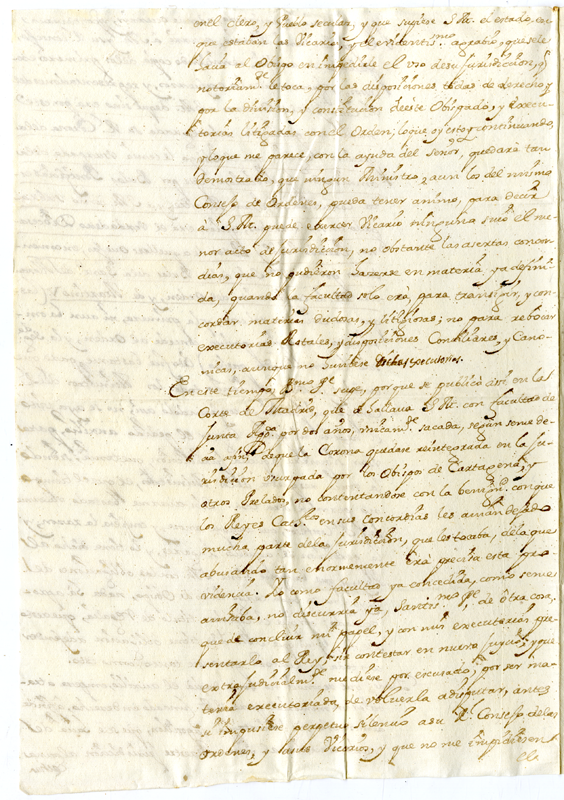 en el clero, y Pueblo secular, y que supiese S.M. el estado, en
que estaban las Vicarias, y el evidentis.mo agrabio, que se le
hacia al Obispo en impedirle el uso de su Jurisdiccion, q
notoriam.te le toca, por las disposiciones todas de derecho, y
por la division, y constitucion de este Obispado, y Execu-
torias litigadas con el Orden; lo que, y esto, continuando,
y lo que me parece, con la ayuda del Señor, quedará tan
demostrado, que ningun Ministro, aun los del mismo
Consejo de Ordenes, pueda tener animo, para decir
á S.M. puede exercer Vicario ninguno suio el me
nor acto de Jurisdiccion, no obstante las asertas concor
dias, que no pudieron hacerse en materia ya defini-
da, quando la facultad solo erá, para transigir, y con-
cordar materias dudosas, y litigiosas; no para rebocar
executorias Rotales, y disposiciones Conciliares, y Cano-
nicas, aunque no hubiese dichas executorias.
En este tiempo, B.mo P.e supe, porque se publicó assi en la
Corte de Madrid, q.e se hallava S.M. con facultad de
Junta App.ca por dos años, unicam.te sacada, segun se me de-
cia de que la Corona quedase reintegrada en la Ju-
risdicion usurpada por los Obispos de Cartagena, y
otros Prelados, no contentandose con la benign.d con que
los Reyes Cat.cos en sus concordias les avian dexado
mucha parte de la Jurisdicion, que les tocaba, de la que
abusando tan enormemente erá precisa esta pro
videncia. Yo como facultad ya concedida, como se me
, no discurria ya, Santis.mo P.e, de otra cosa,
que de concluir mi papel, y con mis executorias pre
sentarlo al Rey, sin contestar en nuevo Juycio; y que
extrajudicialm.te pudiese por escusado, por ser ma-
teria executoriada, de volverla a disputar, antes
se impusiese perpetuo silencio a su R.l Consejo de las
Ordenes, y a sus Vicarios, y que no me impidiesen
el